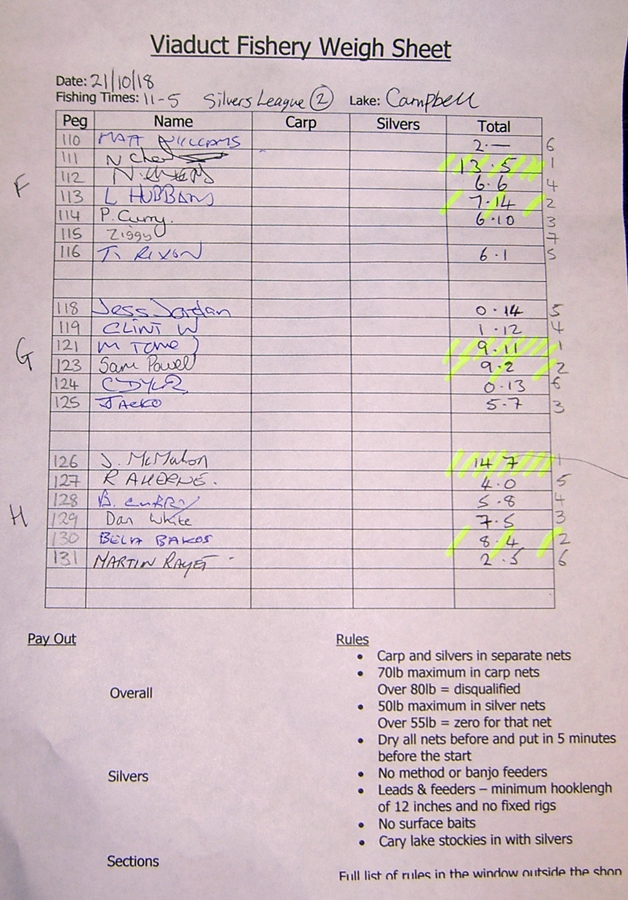 Viaduct Fishery Weigh Sheet
Date: 21/10/18
Fishing Times: 11-5 Silvers League (2) Lake: Campbell
Peg Name Carp Silvers Total
110 MATT WILLIAMS 2 - 6
111 N Chee 13.5 1
112 6.6 4
F
113 L HUBBARD 7.14 2
114 P. Curry. 6.10 3
115 Ziggy 7
116 T. RIXON 6.1 5
118 Jess Jordan 0.14 5
119 CLINT W 1.12 4
G
121 M TONE 9.11 1
123 Sam Powell 9.2 2
124 C DYER 0.13 6
125 JACKO 5.7 3
126 J. McMahon 14 7 1
127 R AHERNE. 4.0 5
128 B. CURRY 5.8 4
H
129 Dan White 7.5 3
130 BELA BAKOS 8.4 2
131 MARTIN 2.5 6
Pay Out
Overall
Silvers
Sections
Rules
• Carp and silvers in separate nets
• 70lb maximum in carp nets
Over 80lb = disqualified
• 50lb maximum in silver nets
Over 55lb = zero for that net
• Dry all nets before and put in 5 minutes
before the start
• No method or banjo feeders
• Leads & feeders – minimum hooklengh
of 12 inches and no fixed rigs
• No surface baits
• Cary lake stockies in with silvers
Full list of rules in the window outside the shop